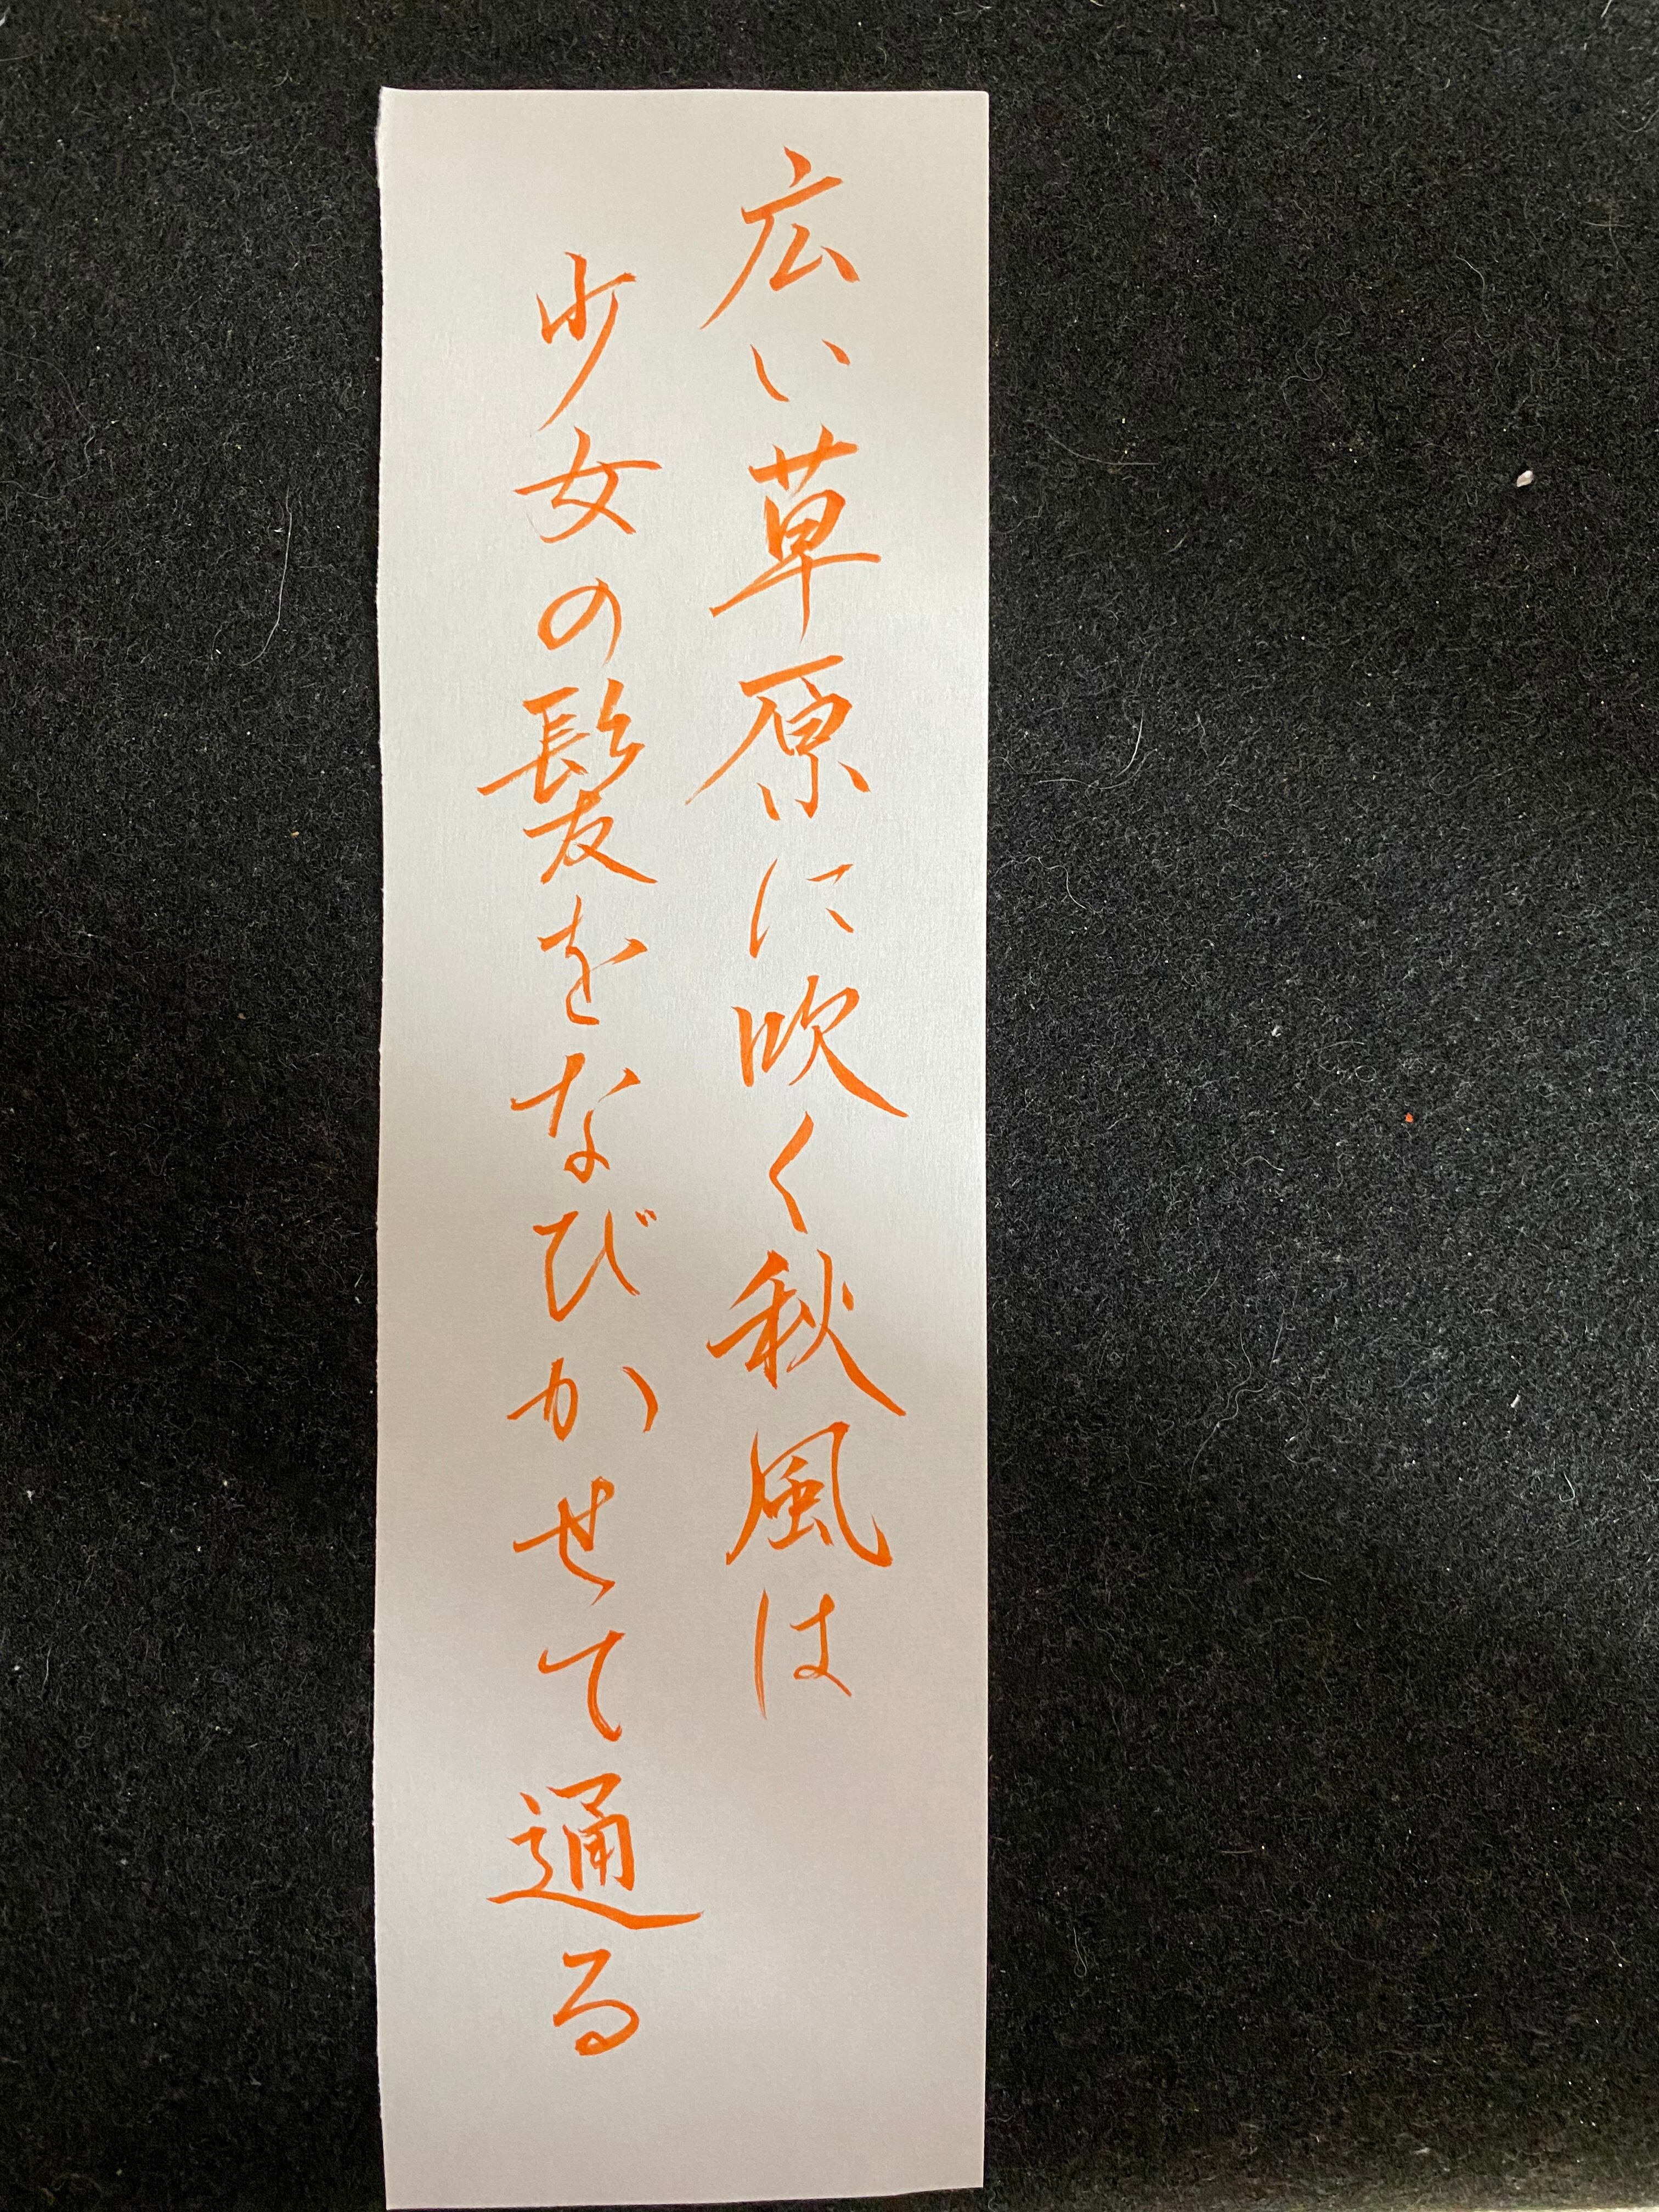 広い草原に吹く秋風は
少女の髪をなびかせて通る